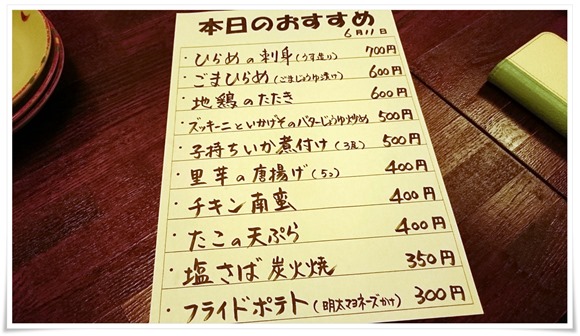 本日のおすすめ
6月11日
・ひらめの刺身(うす造り) 700円
・ごまひらめ(ごまじょうゆ漬け) 600円
・地鶏のたたき 600円
・ズッキーニといかげそのバターじょうゆ炒め 500円
・子持ちいか煮付け(3尾) 500円
・里芋の唐揚げ(5つ) 400円
・チキン南蛮 400円
・たこの天ぷら 400円
・塩さば炭火焼 350円
・フライドポテト(明太マヨネーズかけ) 300円